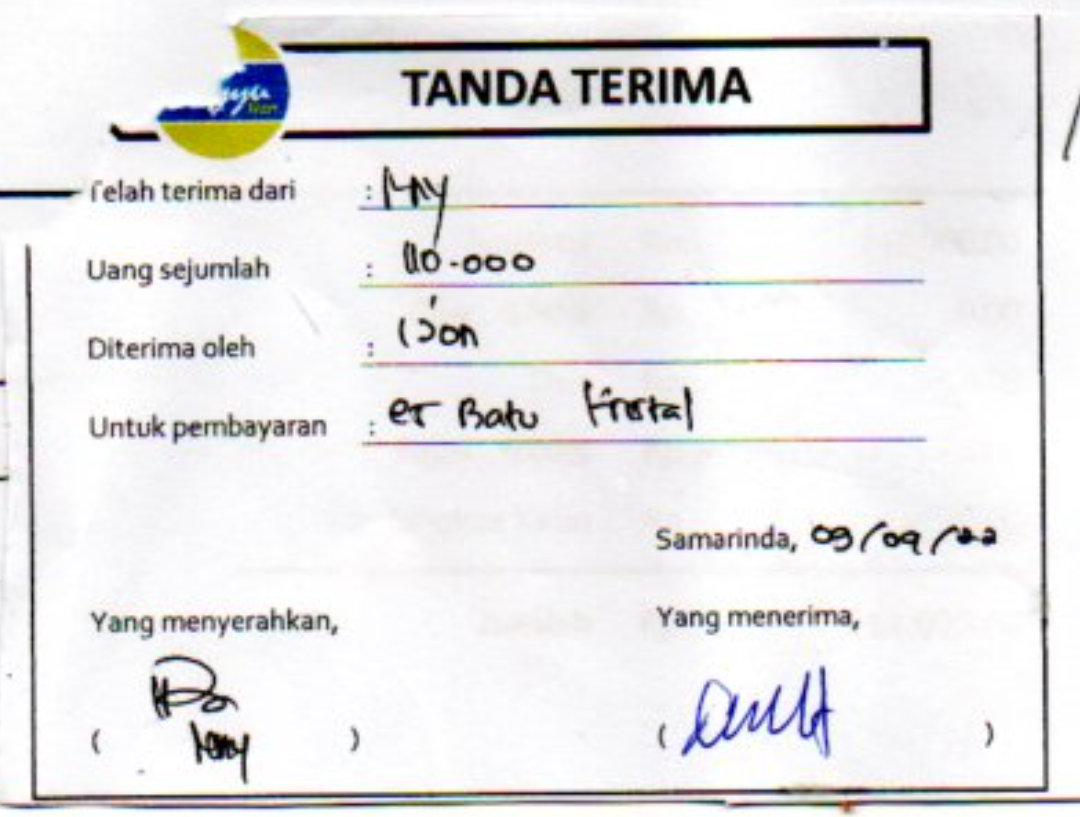 TANDA TERIMA
Telah terima dari :
Uang sejumlah : 110.000
Diterima oleh :
Untuk pembayaran : es Batu Kristal
Samarinda, 09/09/22
Yang menyerahkan,
Yang menerima,
( )
( )